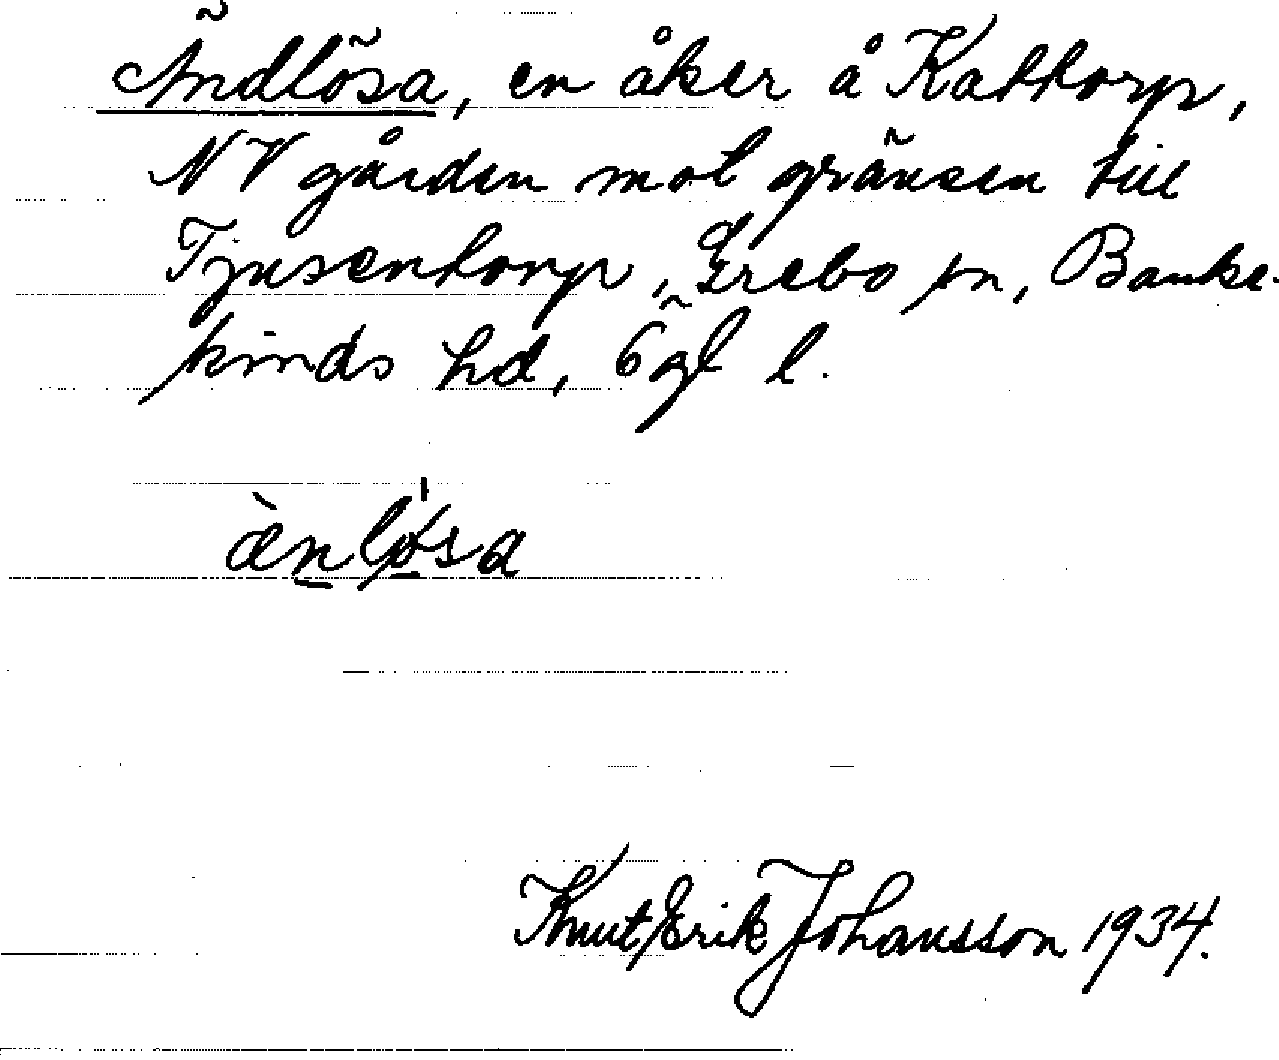 Ändlösa, en åker å Kattorp,
NV gården mot gränsen till
Tjusentorp, Grebo sn, Banke-
kinds hd, Ögl l.
ænløsa
Knut Erik Johansson 1934.